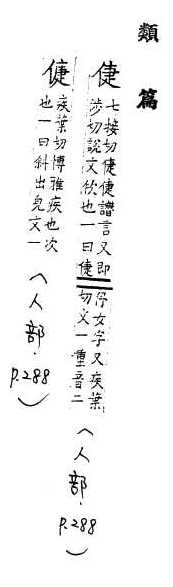 類篇
倢
七接切倢倢譖言又即
渉切說文佽也一曰倢
伃女字又疾葉
切文一重音二
(人部. P.288)
㑻
疾葉切博雅疾也次
也一曰斜出皃文一
(人部. P.288)